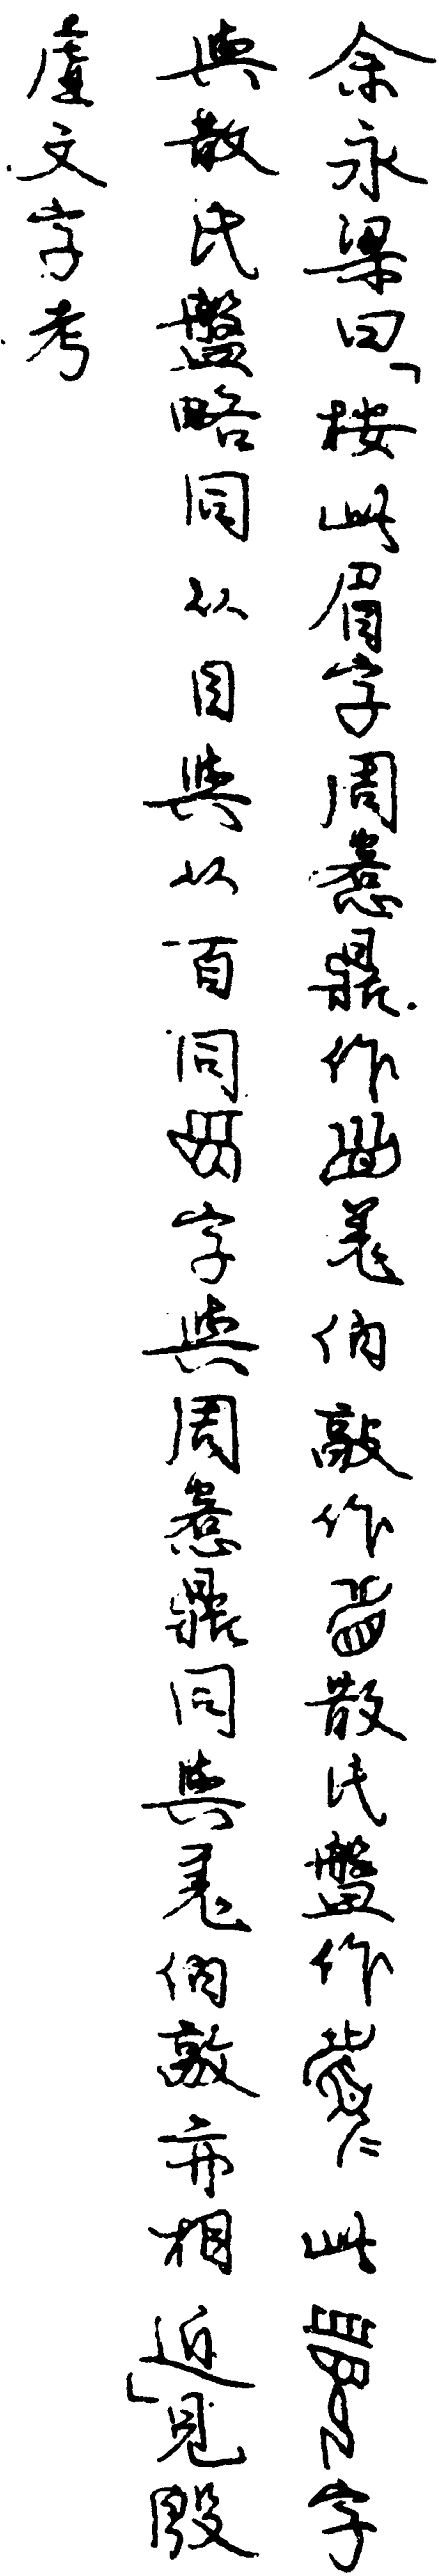 余永梁曰「按此眉字周愙鼎作羌伯敦作散氏盤作此字
與散氏盤略同从目與从百同字與周愙鼎同與羌伯敦亦相近」見殷
虛文字考